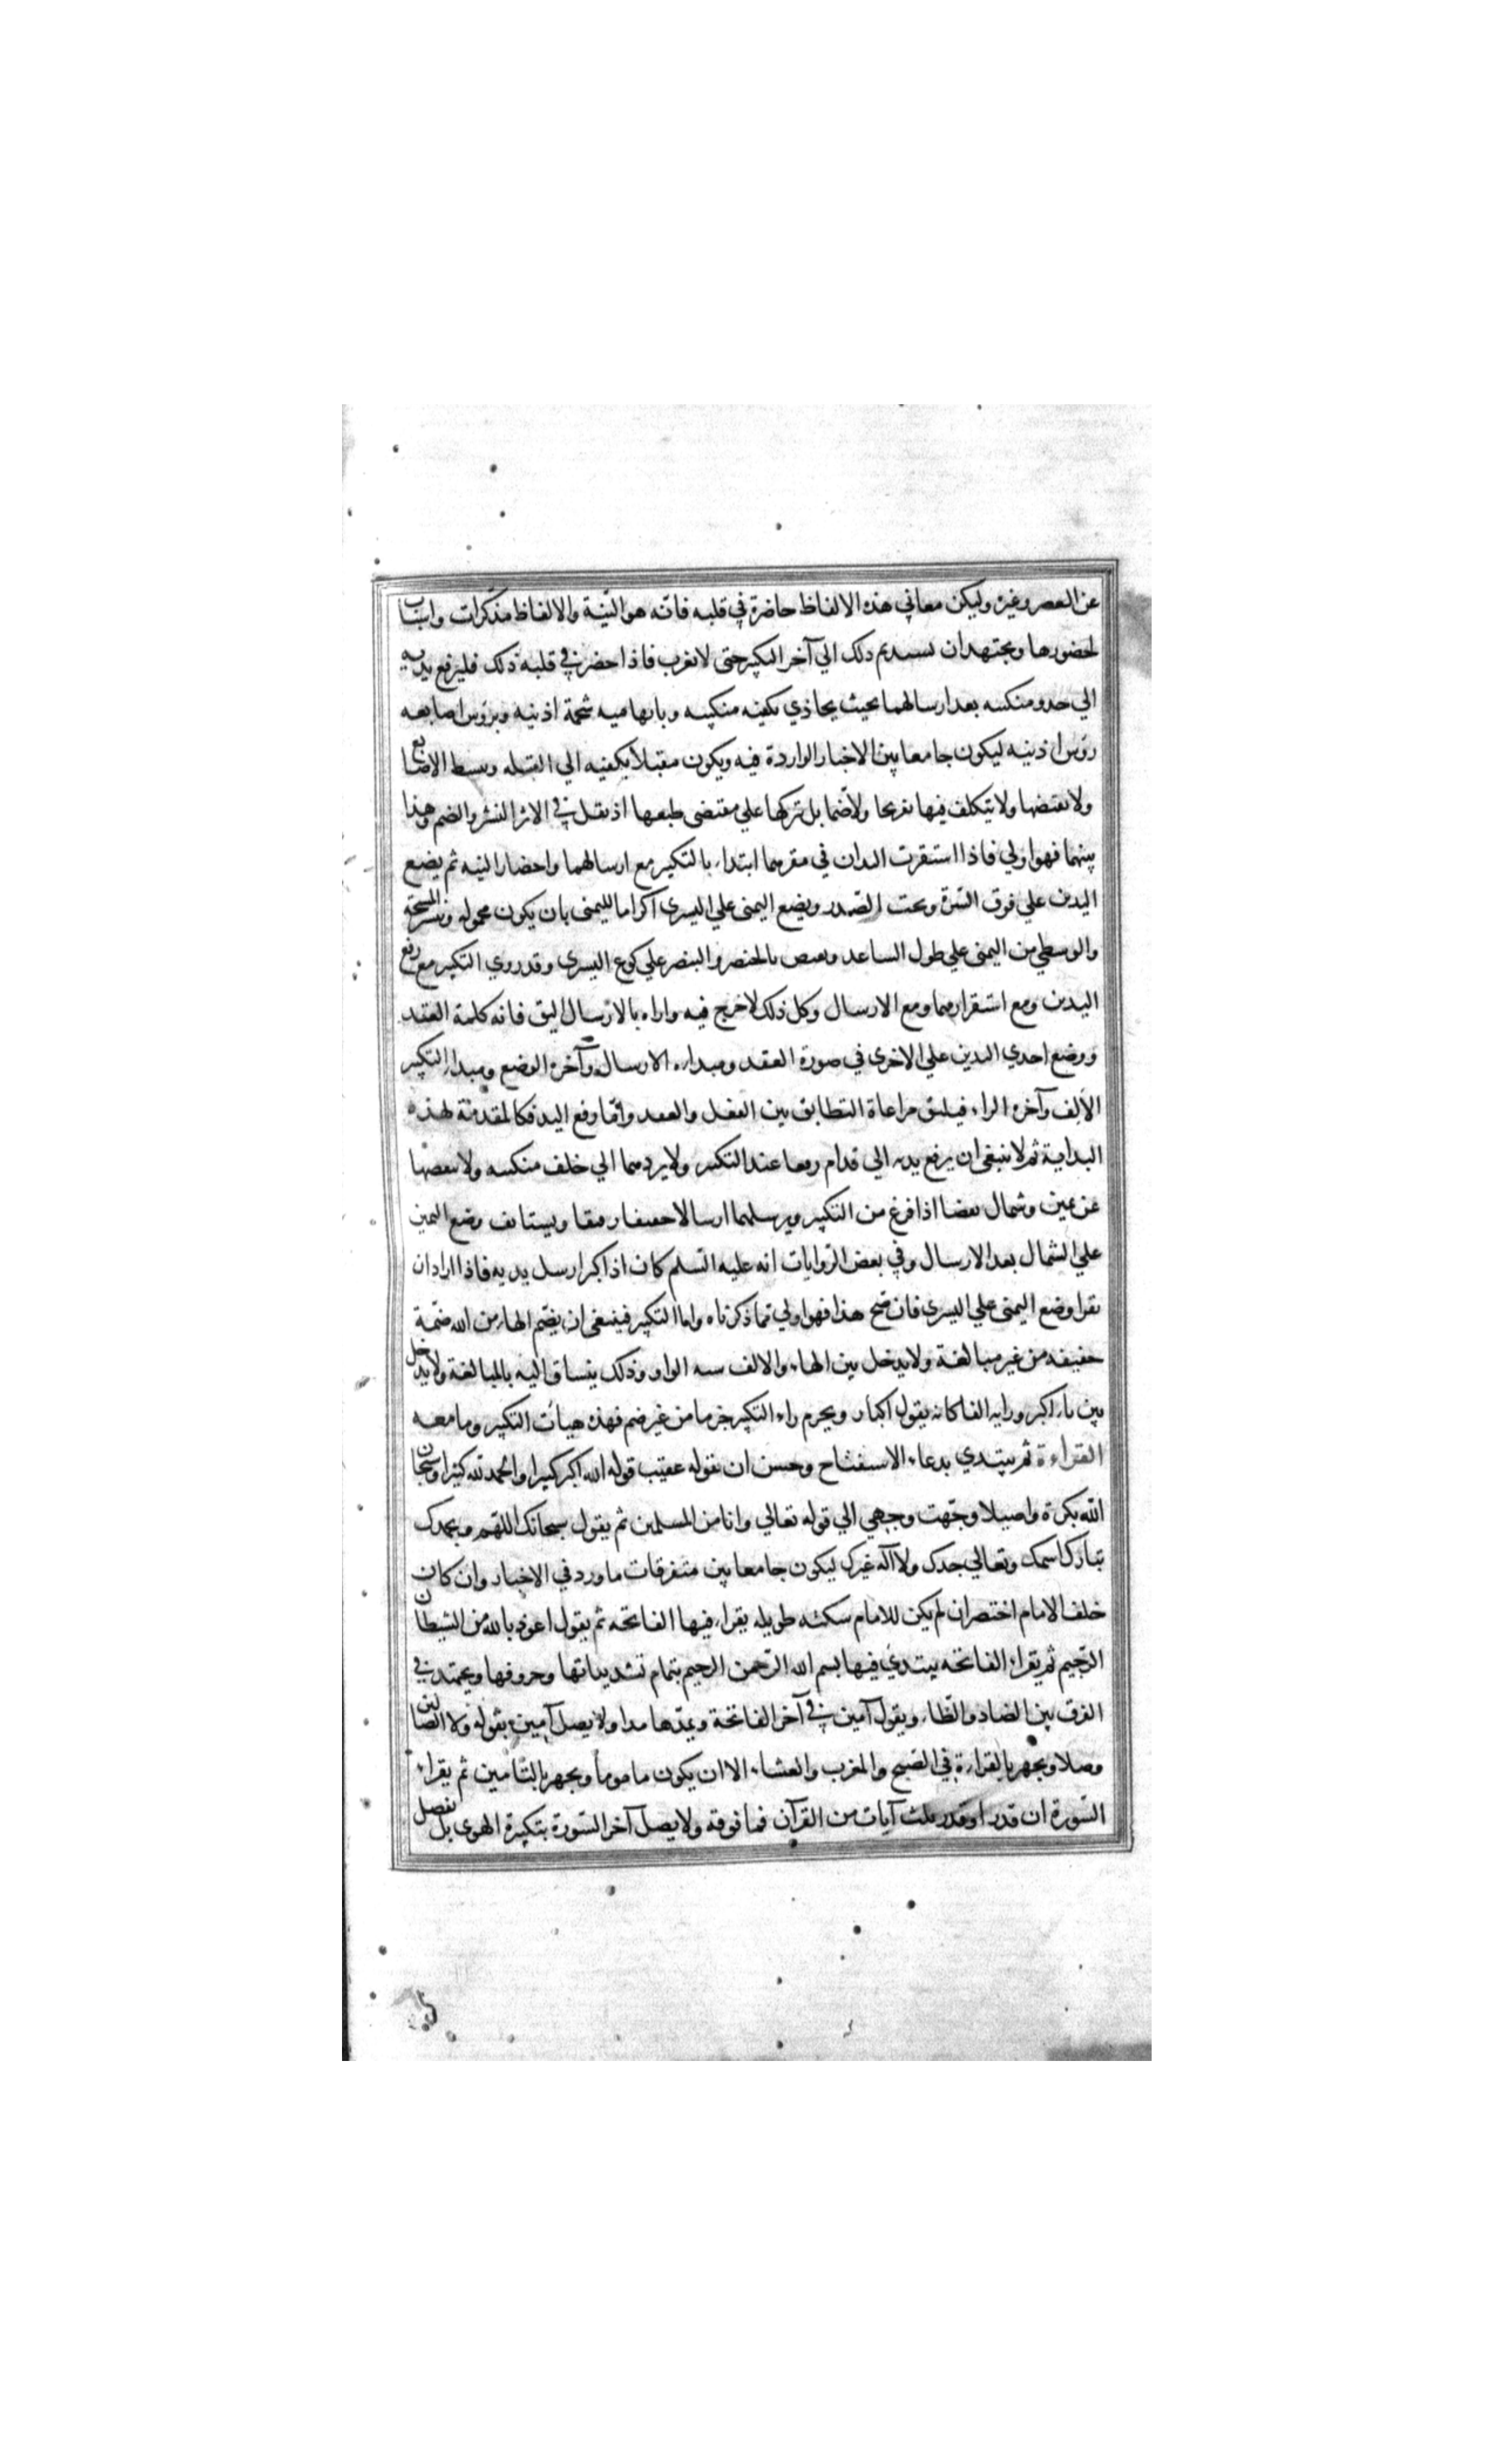 عن العصر وغيره وليكن معاني هذه الالفاظ حاضرة في قلبه فانّه هو النيّة والالفاظ مذكّرات واسباب
لحضورها ويجتهد ان يستديم ذلك الي آخر التكبير حتى لا يغرب فاذا حضر في قلبه ذلك فليرفع يديه
الي حدو منكبيه بعد ارسالهما بحيث يحاذي بكفيه منكبيه وبابهاميه شحمة اذنيه وبرؤس اصابعه
رؤس اذنيه ليكون جامعا بين الاخبار الواردة فيه ويكون مقبلا بكفيه الي القبله وبسط الاصابع
ولا يقبضها ولا يتكلف فيها تفريجا ولا ضمّا بل تركها علي مقتضى طبعها اذ نقل في الاثر النشر والضم وهذا
بينهما فهو اولي فاذا استقرت اليدان في مقرهما ابتداء بالتكبير مع ارسالهما واحضار النيه ثم يضع
اليدين علي فوق السّرة وتحت الصّدر ويضع اليمنى علي اليسرى اكراما لليمنى بان يكون محموله وينشر المسبحة
والوسطي من اليمنى علي طول الساعد ويقبض بالخنصر والبنصر علي كوع اليسرى وقد روي التكبير مع رفع
اليدين ومع استقرارهما ومع الارسال وكل ذلك لا حرج فيه واراه بالارسال اليق فانه كلمة العقد
ووضع احدي اليدين علي الاخرى في صورة العقد ومبداءه الارسال وآخره الوضع ومبداء التكبير
الألف وآخره الراء فيليق مراعاة التطابق بين الفعل والعقد وامّا رفع اليد فكالمقدمّة لهذه
البداية ثم لا ينبغى ان يرفع يديه الي قدام رفعا عند التكبير ولا يردهما الي خلف منكبيه ولا ينفضها
عن يمين وشمال نفضا اذا فرغ من التكبير ويرسلهما ارسالا خفيفا رفيقا ويستانف وضع اليمين
علي الشمال بعد الارسال وفي بعض الرّوايات انه عليه السّلم كان اذا كبر ارسل يديه فاذا اراد ان
يقرا وضع اليمنى علي اليسرى فان صحّ هذا فهو اولي ممّا ذكرناه واما التكبير فينبغى ان يضمّ الهاء من الله ضمّة
خفيفه من غير مبالغة ولا يدخل بين الهاء والالف شبه الواو وذلك ينساق اليه بالمبالغة ولا يدخل
بين باء اكبر ورايه الفا كانه يقول اكبار ويجزم راء التكبير جزما من غير ضم فهذه هيأت التكبير وما معه
القراءة ثم يبتدي بدعاء الاستفتاح وحسن ان يقوله عقيب قوله الله اكبر كبيرا والحمد لله كثيرا وسبحان
الله بكرة واصيلا وجّهت وجهي الي قوله تعالي وانا من المسلمين ثم يقول سبحانك اللهّم وبحمدك
تبارك اسمك وتعالي جدك ولا اله غيرك ليكون جامعا بين متفرقات ما ورد في الاخبار وان كان
خلف الامام اختصر ان لم يكن للامام سكته طويله يقراء فيها الفاتحه ثم يقول اعوذ بالله من الشيطان
الرّجيم ثم يقراء الفاتحه يبتدي فيها بسم الله الرّحمن الرحيم بتمام تشديداتها وحروفها ويجتهد في
الفرق بين الضاد والظاء ويقول آمين في آخر الفاتحة ويمدّها مدا ولا يصل آمين بقوله ولا الضالين
وصلا ويجهر بالقراءة في الصّبح والمغرب والعشاء الا ان يكون ماموما ويجهر بالتّامين ثم يقراء
السّورة ان قدر او قدر ثلث آيات من القرآن فما فوقه ولا يصل آخر السّورة بتكبيرة الهوى بل يفصل